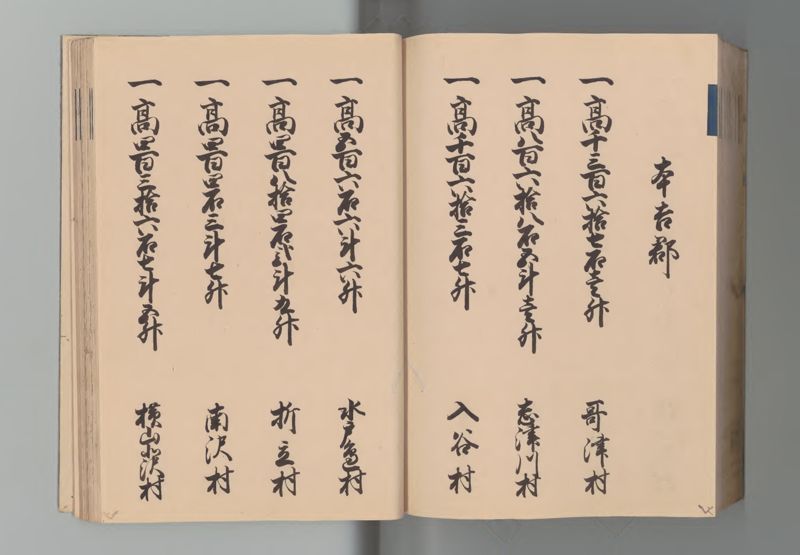 本吉郡
一高千三百六拾七石壱升 哥津村
一高八百六拾八石五斗壱升 志津川村
一高千百六拾三石七升 入谷村
一高五百六石六斗六升 水戸邉村
一高四百八拾四石弐斗九升 折立村
一高四百四石三斗七升 南沢村
一高四百三拾六石七斗五升 横山北沢村